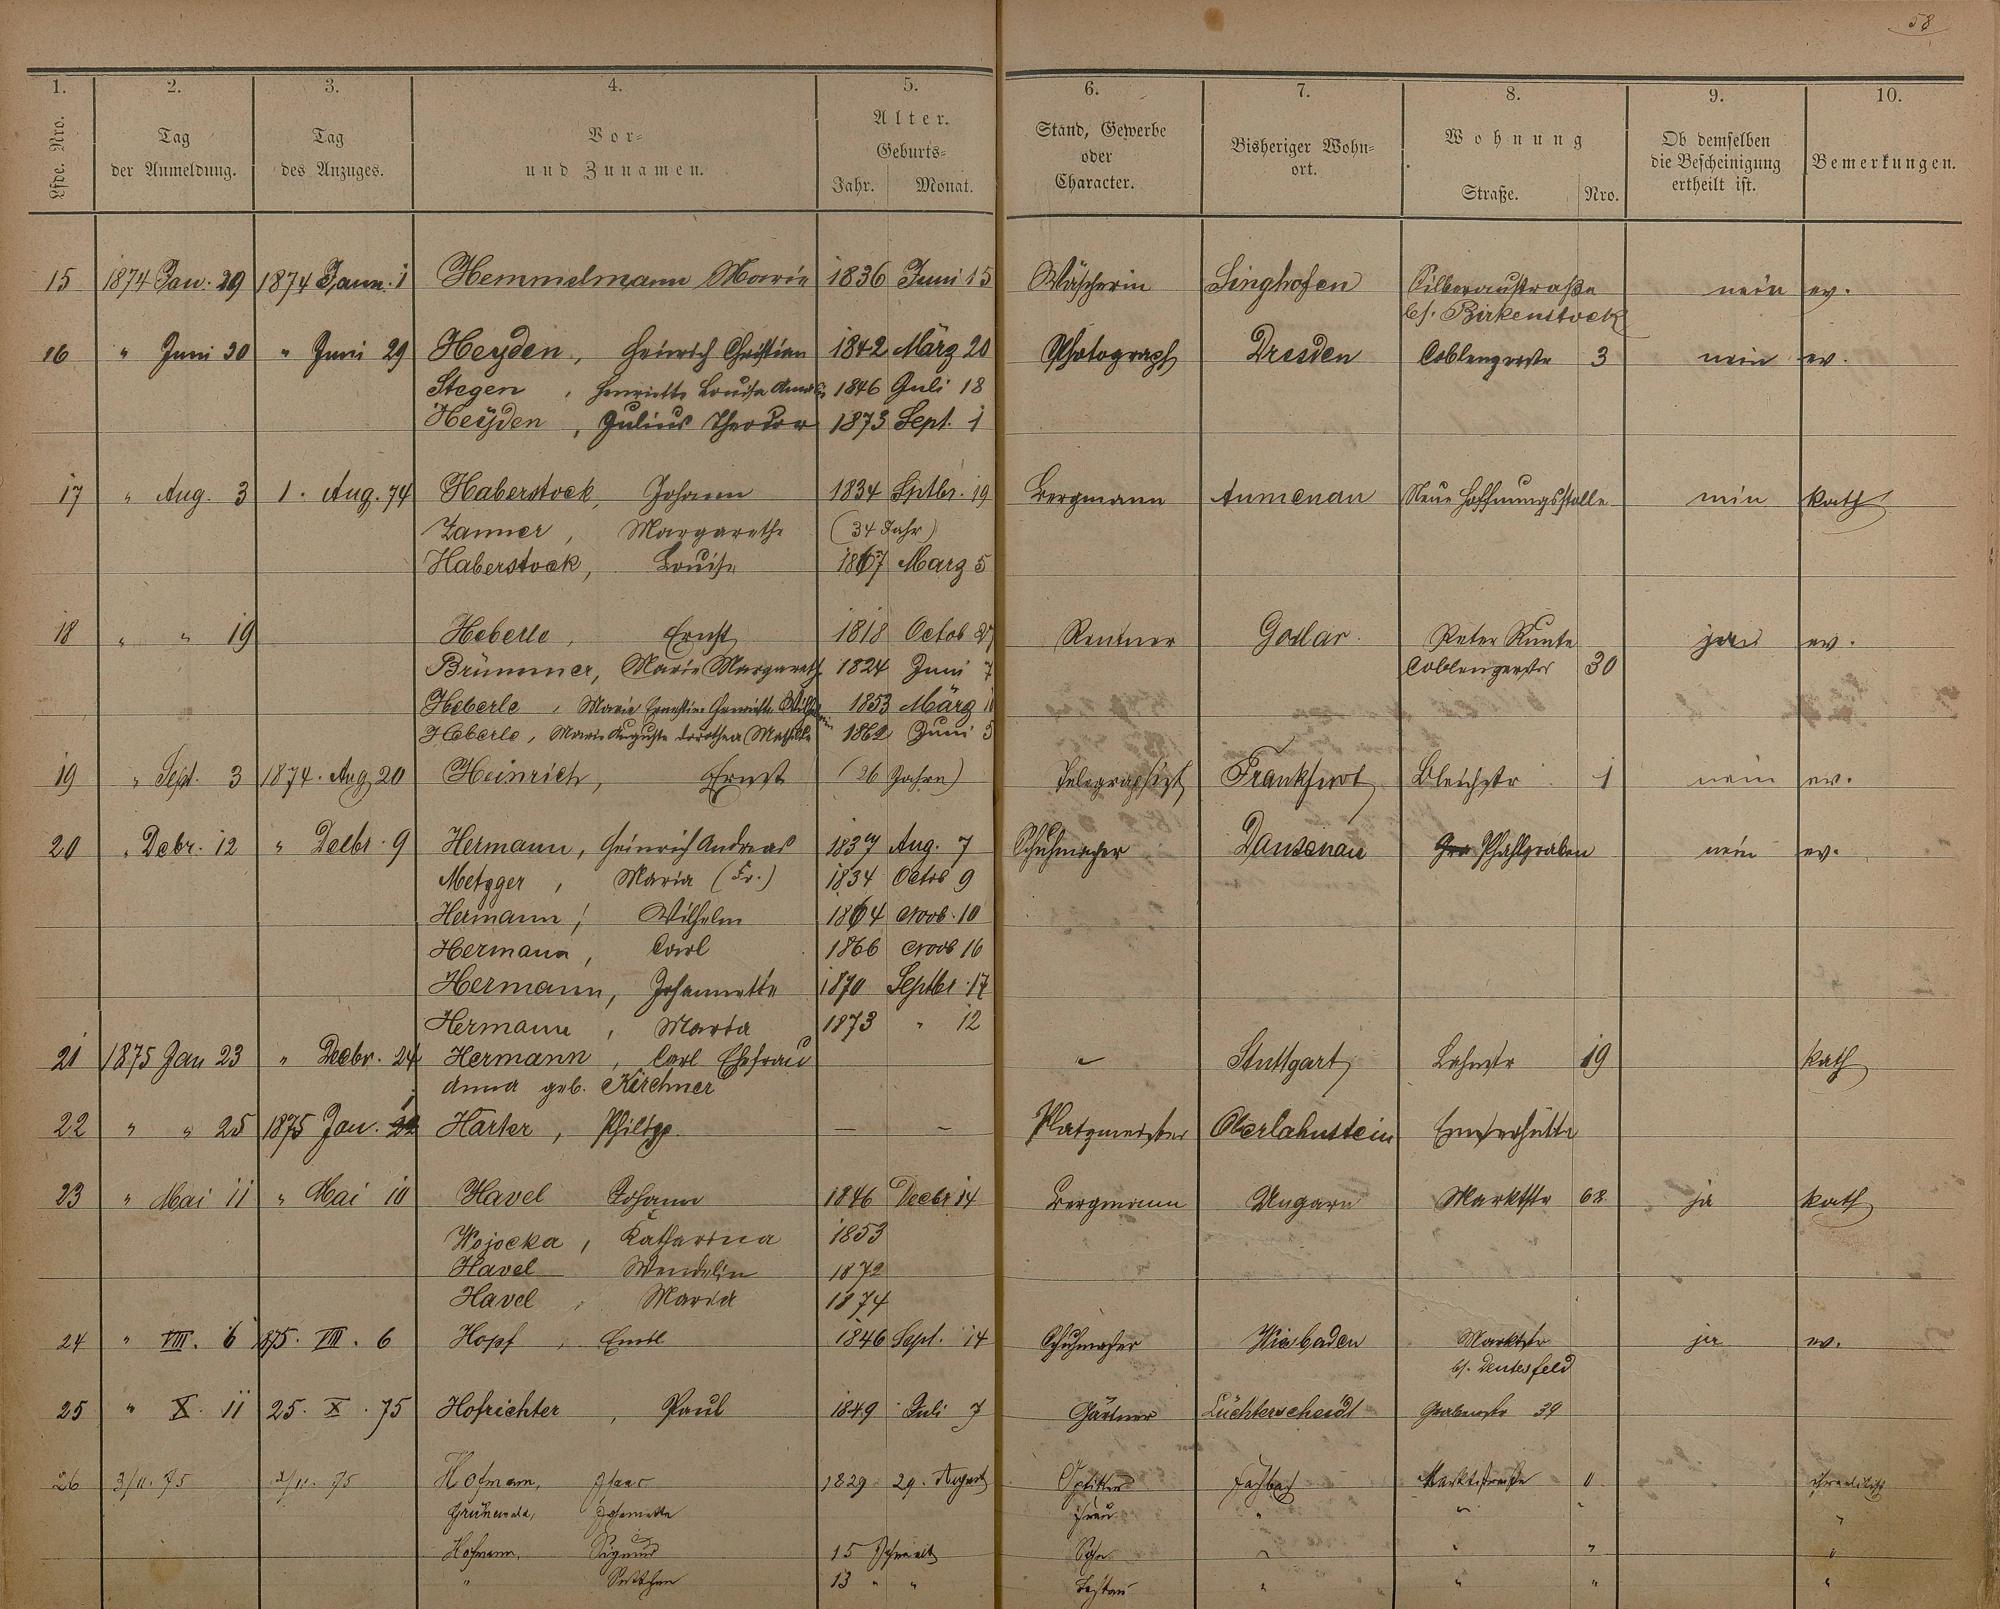 58
1. 2. 3. 4. 5. 6. 7. 8. 9. 10.
Lfde. Nro. Tag der Anmeldung. Tag des Anzuges. Vor- und Zunamen. Alter. Geburts- Jahr. Monat. Stand, Gewerbe oder Character. Bisheriger Wohn- ort. Wohnung Straße. Nro. Ob demselben die Bescheinigung ertheilt ist. Bemerkungen.
15 1874 Jan. 29 1874 Jann. 1 Hemmelmann Marie 1836 Juni 15 Wäscherin Singhofen Silberaustraße nein ev.
bf. Birkenstock
16 " Juni 30 " Juni 29 Heyden, Heinrich Christian 1842 März 20 Photograph Dresden Coblenzerstr 3 nein ev.
Stegen, Henriette Louise 1846 Juli 18
Heyden, Julius Theodor 1873 Sept. 1
17 " Aug. 3 1. Aug. 74 Haberstock, Johann 1834 Sptbr. 19 Bergmann Aumenau Neue Hoffnungsstolle nein kath
Zanner, Margarethe (34 Jahr)
Haberstock, Louise 1867 Marz 5
18 " " 19 Heberle, Ernst 1818 Octob 27 Rentner Goslar. Peter Kunte ev.
Brümmer, Marie Margareth 1824 Juni 7 Coblenzerstr 30
Heberle, Marie Ernestine Henriette 1853 März 11
Heberle, Marie Auguste Dorothea Mathilde 1862 Juni 3
19 " Sept. 3 1874. Aug 20 Heinrich, Ernst (26 Jahre) Telegraphist Frankfurt Bleichstr 1 nein ev.
20 " Debr. 12 " Decbr. 9 Hermann, Heinrich Andreas 1837 Aug. 7 Schuhmacher Dausenau Pfahlgraben nein ev.
Metzger, Maria (Fr.) 1834 Octob 9
Hermann, Wilhelm 1864 Novb. 10
Hermann, Carl 1866 Novb 16
Hermann, Johannette 1870 Septbr 17
Hermann, Maria 1873 " 12
21 1875 Jan 23 " Decbr. 24 Hermann, Carl Ehefrau " Stuttgart Lahnstr 19 kath
Anna geb. Kirchner
22 " " 25 1875 Jan. 1 Harter, Philipp. — — Platzmeister Oberlahnstein Emserhütte
23 " Mai 11 " Mai 10 Havel Johann 1846 Decbr 14 Bergmann Ungarn Marktstr 62 ja kath
Wojocka, Katharina 1853
Havel Wendelin 1872
Havel, Maria 1874
24 " VIII. 6 1875. VIII. 6 Hopf, Emil 1846 Sept. 14 Schuhmacher Wiesbaden Marktstr ja ev.
bf. Deutesfeld
25 " X. 11 25. X. 75 Hofrichter, Paul 1849 Juli 7 Gärtner Lüchterscheidt Grabenstr 39
26 3/11. 75 2/11. 75 Hofmann, Isaac 1829 29. August Optiker Fachbach Marktstraße 11 israelitisch
Grünewald, Johannette Frau " " " "
Hofmann, Sigmund 15 Jahre alt Sohn " " " "
" 13 " " " " " "